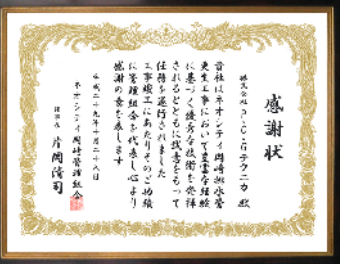 感謝状
株式会社 P・C・Gテクニカ 殿
貴社はネオシティ岡崎排水管
更生工事において豊富な経験
に基づく優秀な技術を発揮
されるとともに誠意をもって
任務を遂行されました
工事竣工にあたりそのご功績
に管理組合を代表し心より
感謝の意を表します
平成二十九年十月二十八日
ネオシティ岡崎管理組合
理事長 片岡清司